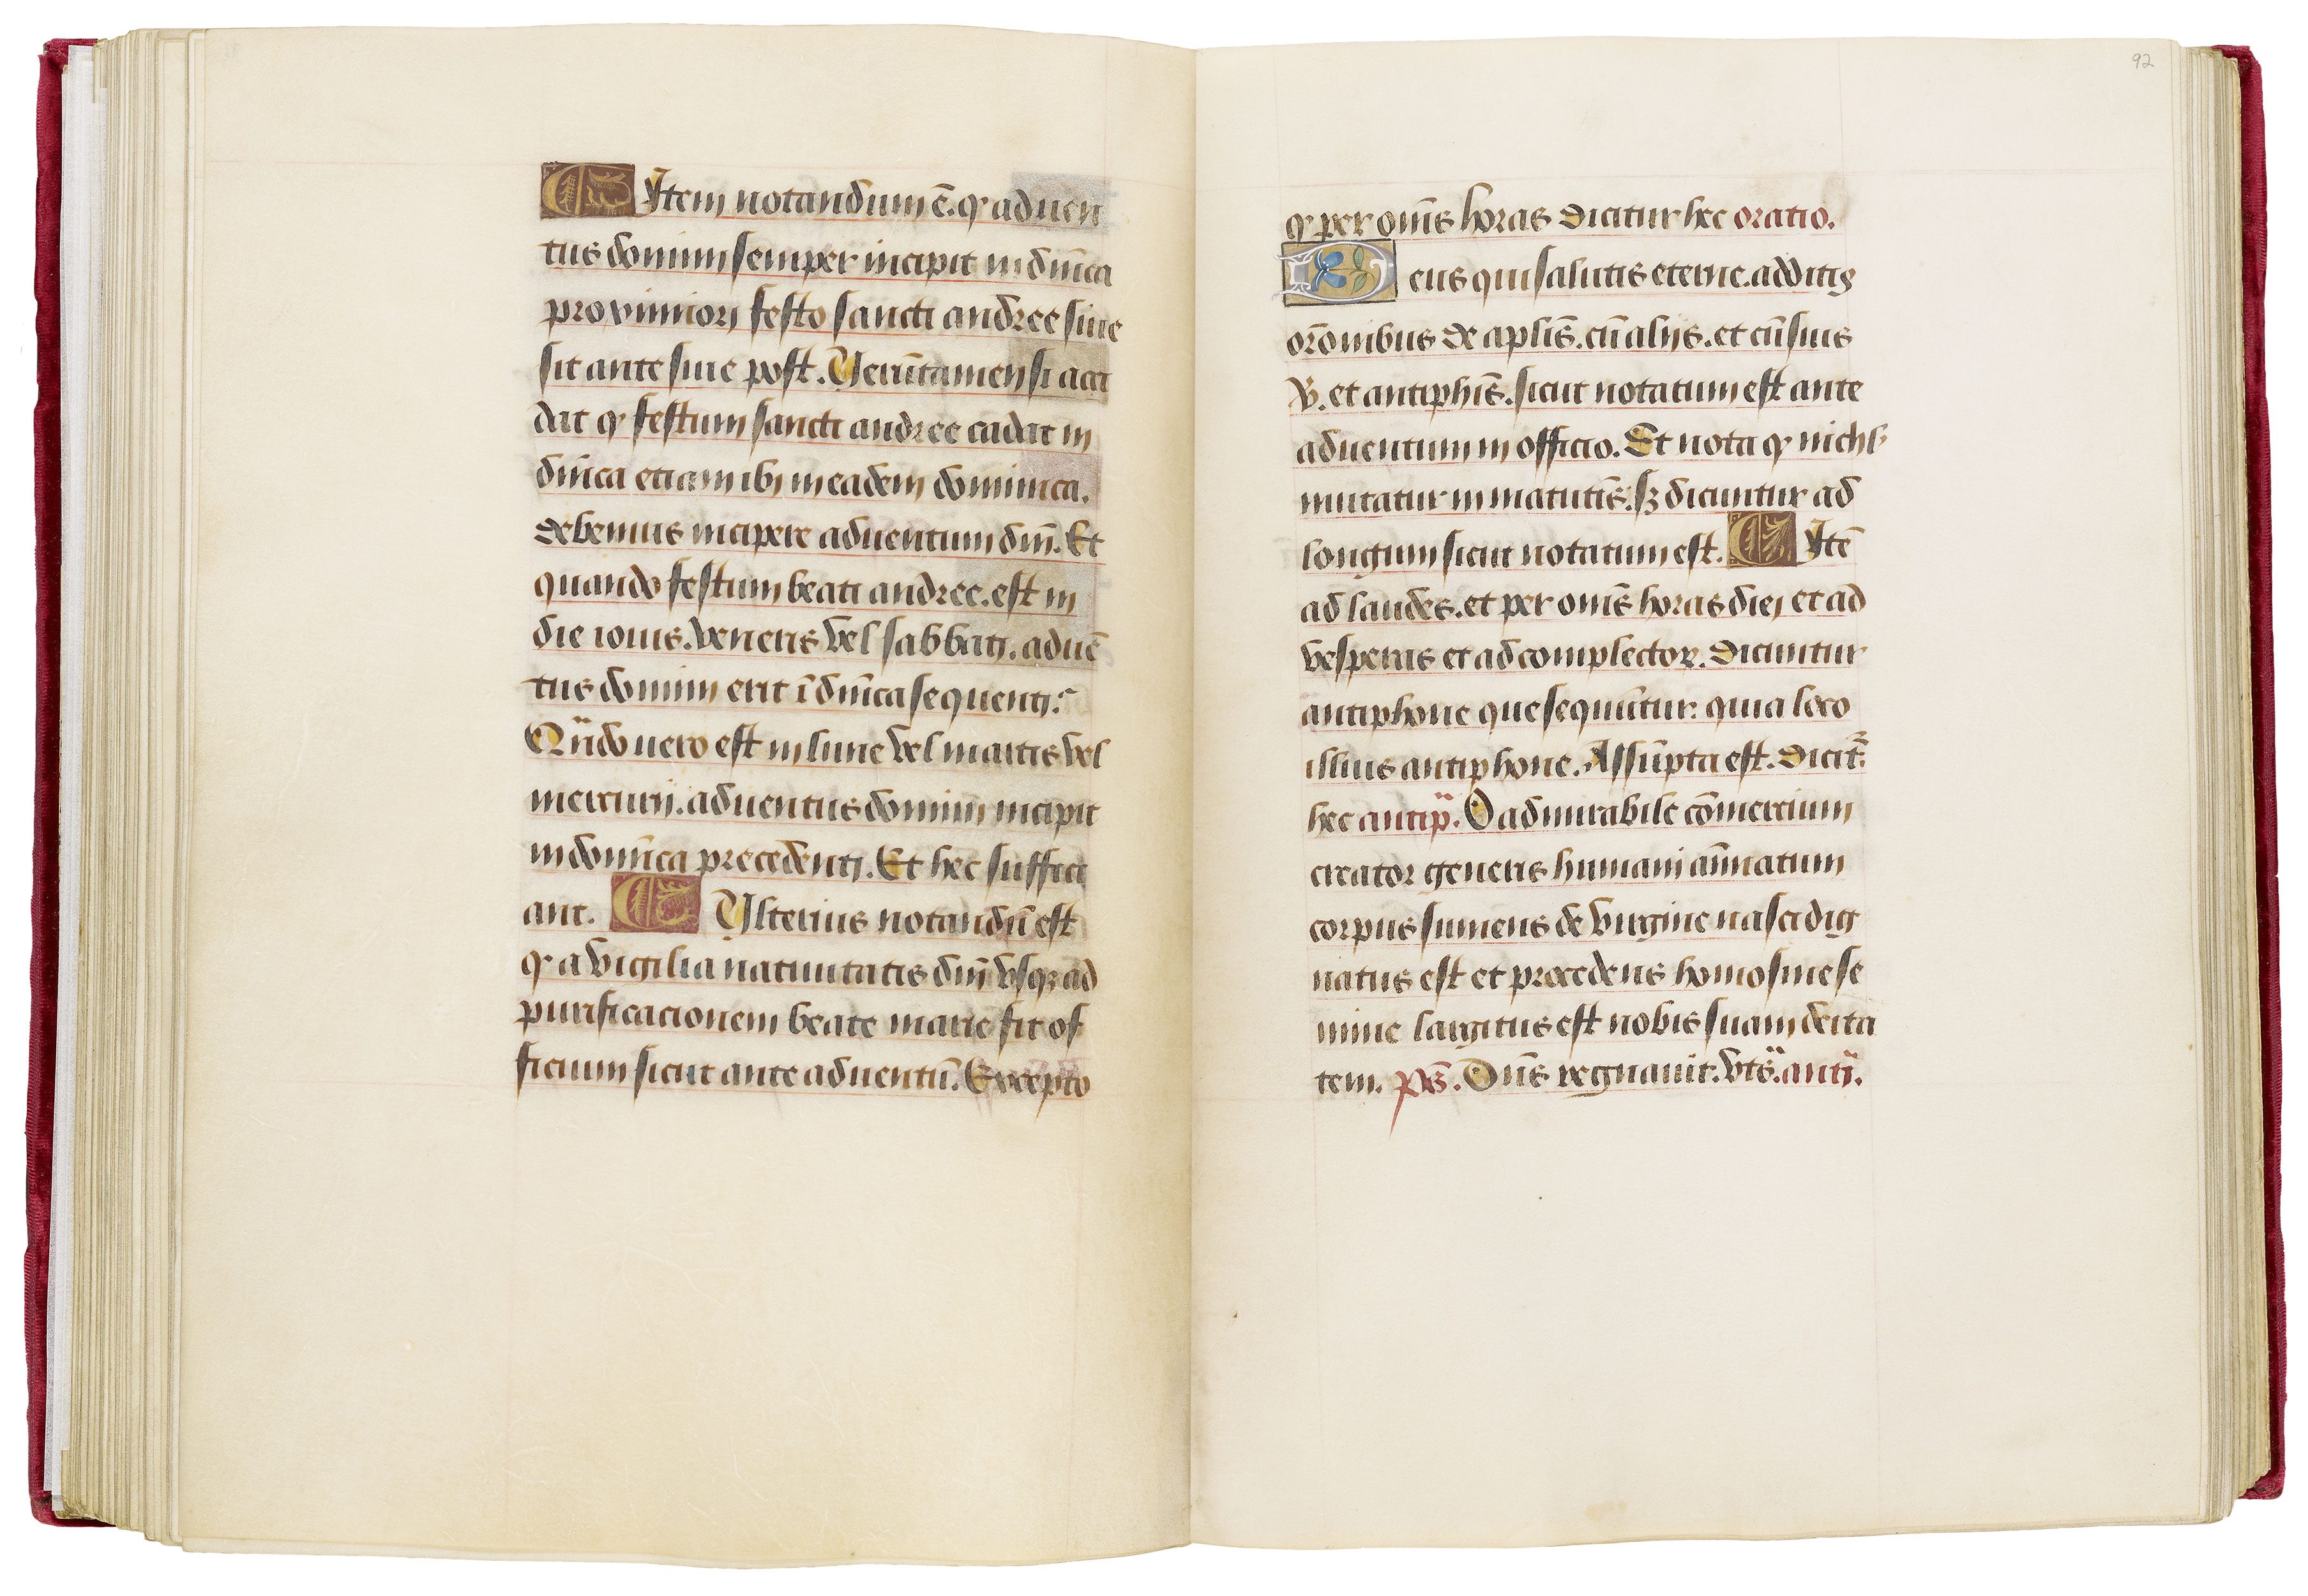 Item notandum ē. qͥ aduen
tus domini semper incipit in dn̄ica
proximiori festo sancti andree siue
sit ante siue post. Verūtamen si acci
dat qͥ festum sancti andree cadat in
dn̄ica etiam ibi in eadem dominica.
debemus incipere aduentum dn̄i. Et
quando festum beati andree. est in
die iouis. veneris vel sabbati. aduē
tus domini erit ī dn̄ica sequenti.
Qn̄do uero est in lune vel martis vel
mercurij. aduentus domini incipit
in domīca precedenti. Et hec suffici
ant. Vlterius notandū est
qͥ a vigilia natiuitatis dn̄i vsqꝫ ad
purificacionem beate marie fit of
ficium sicut ante aduentū. Excepto
92
qͥ per om̄s horas dicitur hec oratio.
Deus qui salutis eterne. additis
or̄onibus de apl̄is. cū alijs. et cū suis
℣. et antiphīs. sicut notatum est ante
aduentum in officio. Et nota qͥ nichil
mutatur in matutīs. sꝫ dicuntur ad
longum sicut notatum est. Itē
ad laudes. et per om̄s horas diei et ad
vesperas et ad complectoꝝ. dicuntur
antiphone que sequūtur: quia loco
illius antiphone. Assūpta est. dicit̄.
hec antip̄. O admirabile cōmercium
creator generis humani aīmatum
corpus sumens de virgine nasci dig
natus est et procedens homo sine se
mine largitus est nobis suam deita
tem. ps̄. Dn̄s regnauit. vts̄. anti.